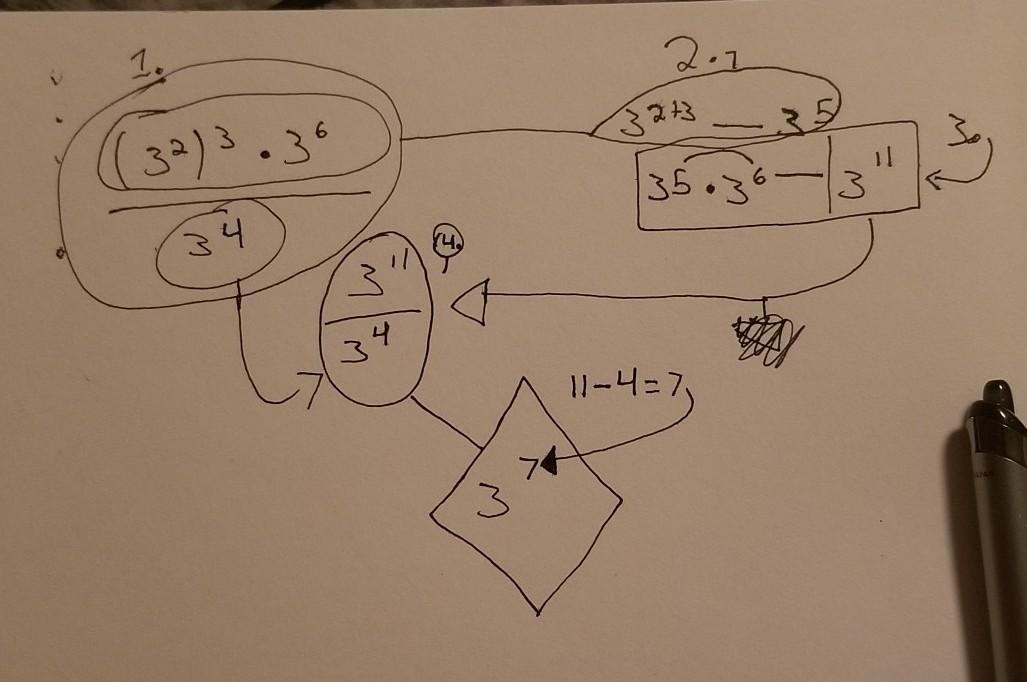 1.
(3²)³ · 3⁶
3⁴
2.
3²⁺³ — 3⁵
3⁵ · 3⁶ — 3¹¹
3.
4.
3¹¹
3⁴
11-4=7
3⁷